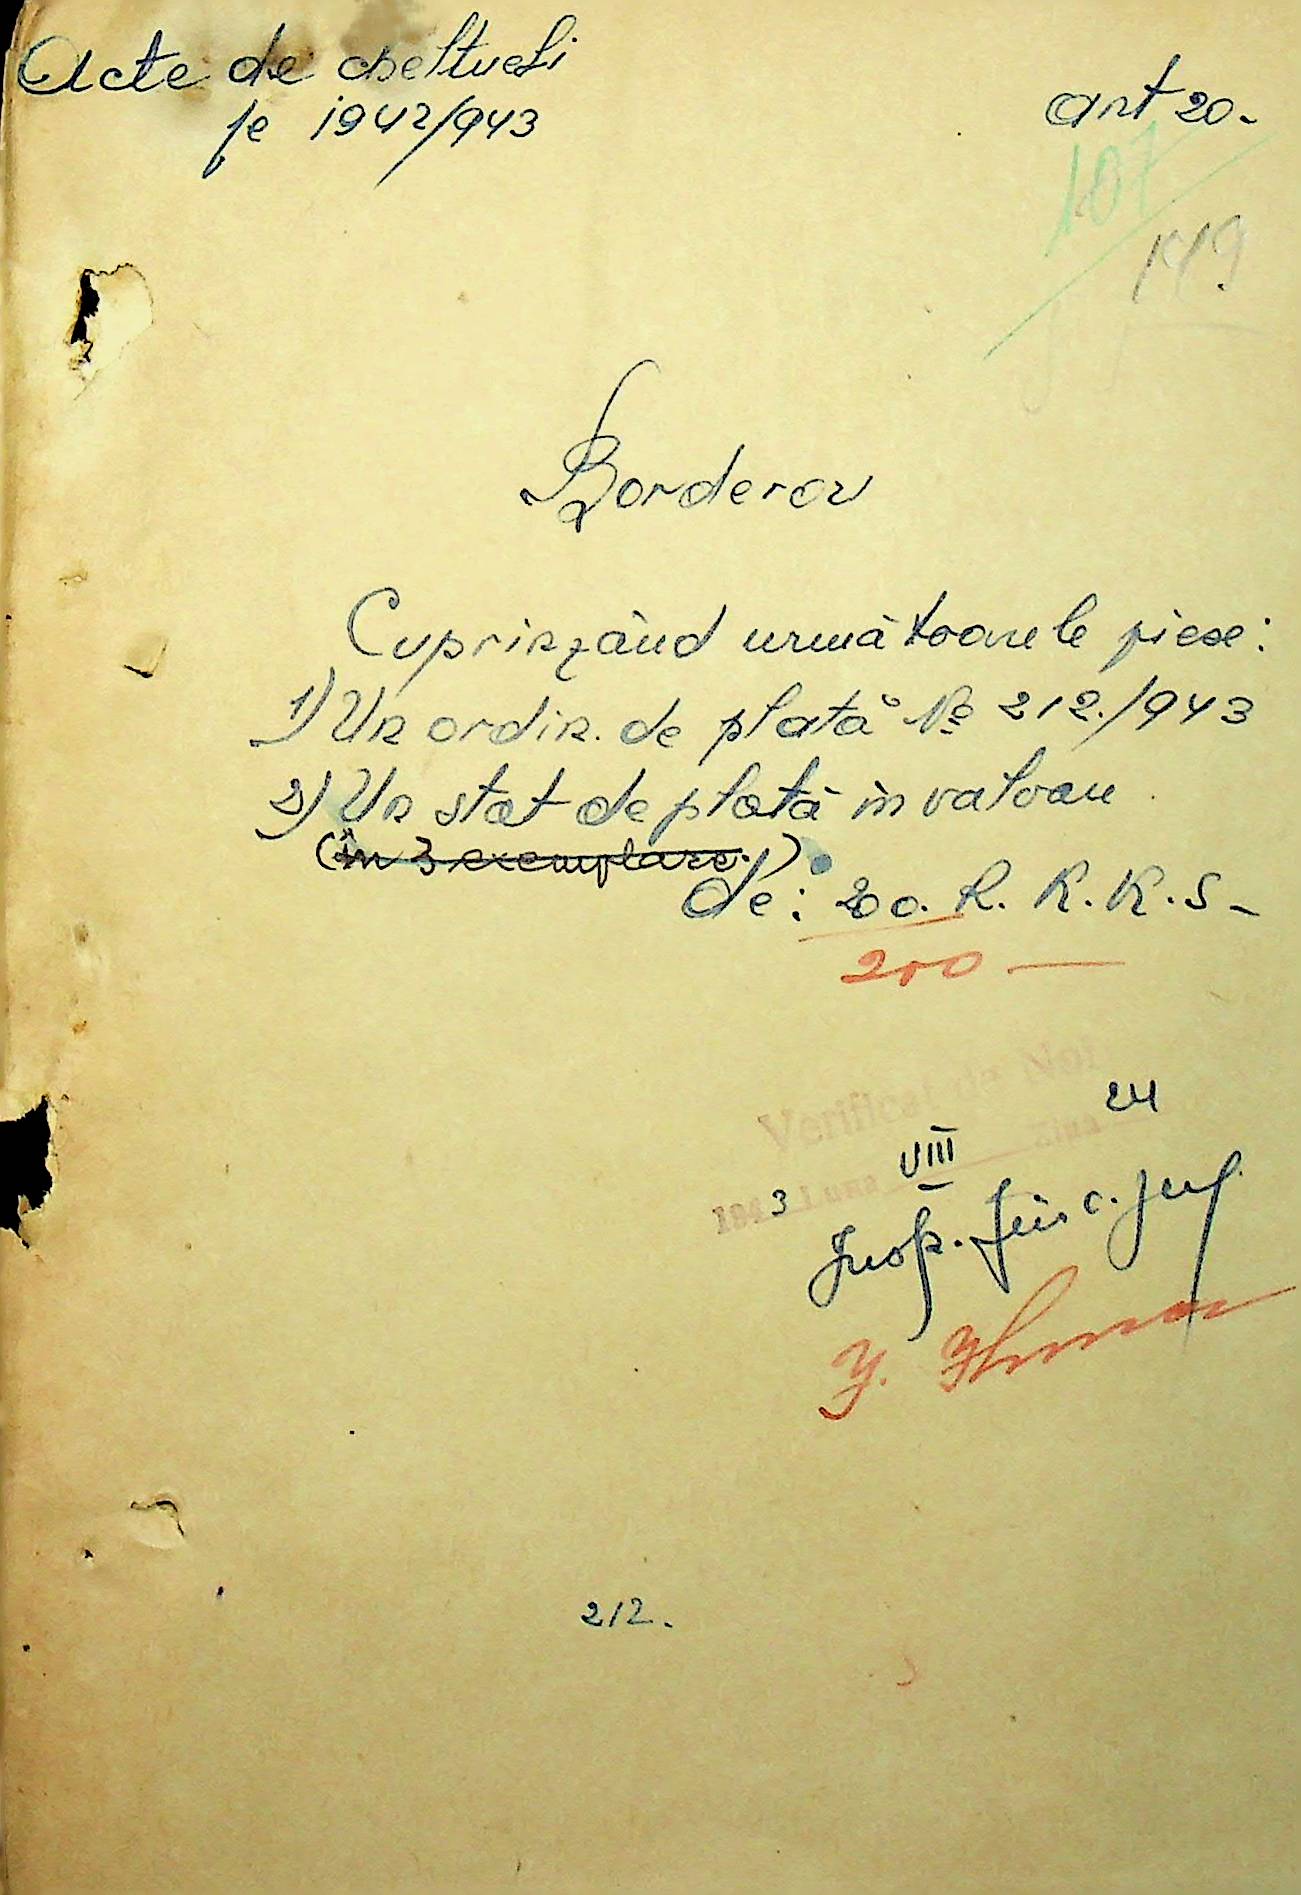 Acte de cheltueli
pe 1942/943
art 20.-
107
149.
Borderou
Cuprinzând următoarele piese:
1) Un ordin. de plată Nº 212./943
2) Un stat de plată în valoare
(în 3 exemplare.)
de: 200. R. K. K. S -
200 —
Verificat de Noi
1943 Luna VIII Ziua 24
Insp. fin. c.
212.